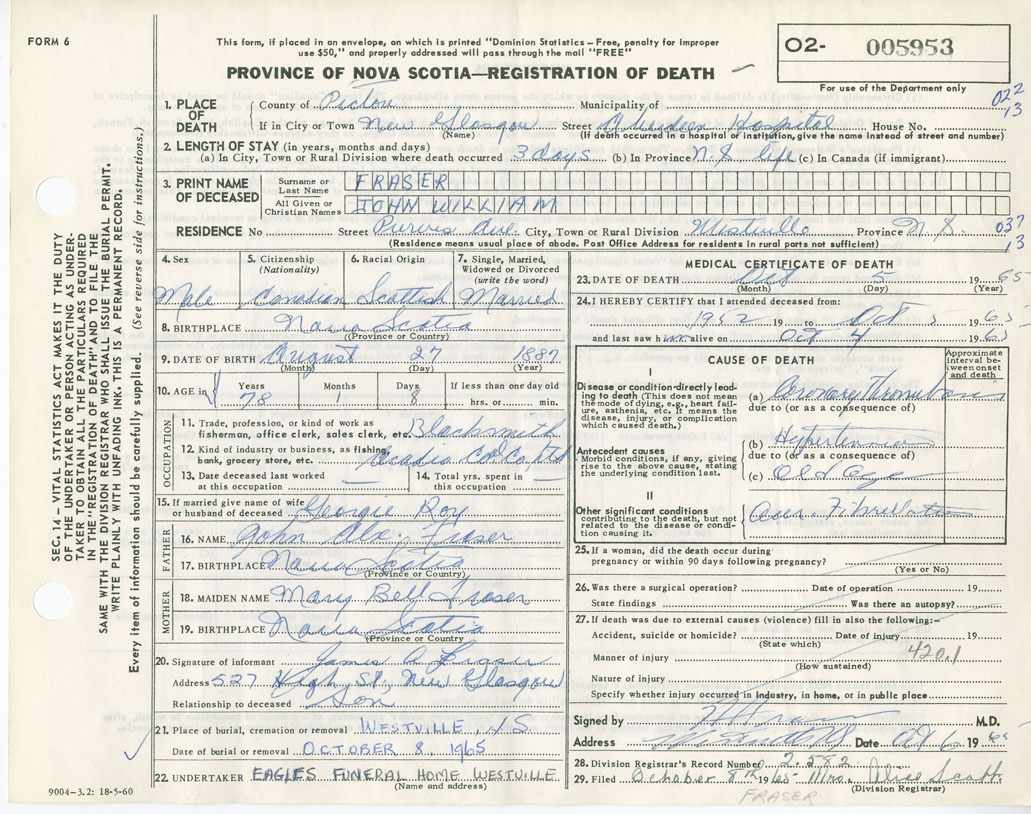 FORM 6
This form, if placed in an envelope, on which is printed "Dominion Statistics – Free, penalty for improper
use $50," and properly addressed will pass through the mail "FREE"
PROVINCE OF NOVA SCOTIA—REGISTRATION OF DEATH
O2- 005953
For use of the Department only
022
13
1. PLACE OF DEATH County of Pictou Municipality of
If in City or Town New Glasgow Street Aberdeen Hospital House No.
(Name) (If death occurred in a hospital or institution, give the name instead of street and number)
2. LENGTH OF STAY (in years, months and days)
(a) In City, Town or Rural Division where death occurred 3 days (b) In Province N.S. life (c) In Canada (if immigrant)
3. PRINT NAME OF DECEASED Surname or Last Name FRASER
All Given or Christian Names JOHN WILLIAM
RESIDENCE No Street Purves Ave. City, Town or Rural Division Westville Province N.S.
037
13
(Residence means usual place of abode. Post Office Address for residents in rural parts not sufficient)
4. Sex Male
5. Citizenship (Nationality) Canadian
6. Racial Origin Scottish
7. Single, Married, Widowed or Divorced (write the word) Married
8. BIRTHPLACE Nova Scotia
(Province or Country)
9. DATE OF BIRTH August 27 1887
(Month) (Day) (Year)
10. AGE in Years 78 Months 1 Days 8 If less than one day old hrs. or min.
OCCUPATION
11. Trade, profession or kind of work as
fisherman, office clerk, sales clerk, etc. Blacksmith
12. Kind of industry or business, as fishing,
bank, grocery store, etc. Acadia Coal Co. Ltd
13. Date deceased last worked at this occupation
14. Total yrs. spent in this occupation
15. If married give name of wife or husband of deceased Georgie Roy
FATHER
16. NAME John Alx. Fraser
17. BIRTHPLACE Nova Scotia
(Province or Country)
MOTHER
18. MAIDEN NAME Mary Bell Fraser
19. BIRTHPLACE Nova Scotia
(Province or Country)
20. Signature of informant James A Fraser
Address 527 High St., New Glasgow
Relationship to deceased Son
21. Place of burial, cremation or removal WESTVILLE, N.S.
Date of burial or removal OCTOBER 8, 1965
22. UNDERTAKER EAGLES FUNERAL HOME WESTVILLE
(Name and address)
MEDICAL CERTIFICATE OF DEATH
23. DATE OF DEATH Oct 5 1965
(Month) (Day) (Year)
24. I HEREBY CERTIFY that I attended deceased from:
1952 19 to Oct 5 1965
and last saw him alive on Oct 4 1965
CAUSE OF DEATH
Approximate interval between onset and death
I
Disease or condition directly leading to death (This does not mean
the mode of dying, e.g., heart failure, asthenia, etc. It means the
disease, injury, or complication which caused death.)
(a) Coronary Thrombosis
due to (or as a consequence of)
Antecedent causes
Morbid conditions, if any, giving
rise to the above cause, stating
the underlying condition last.
(b) Hypertension
due to (or as a consequence of)
(c) Old Age
II
Other significant conditions
contributing to the death, but not
related to the disease or condition causing it.
Auric. Fibrillation
25. If a woman, did the death occur during
pregnancy or within 90 days following pregnancy?
(Yes or No)
26. Was there a surgical operation? Date of operation 19
State findings Was there an autopsy?
27. If death was due to external causes (violence) fill in also the following:-
Accident, suicide or homicide? Date of injury 19
(State which)
420.1
Manner of injury
(How sustained)
Nature of injury
Specify whether injury occurred in industry, in home, or in public place
Signed by M.D.
Address Date Oct 6 1965
28. Division Registrar's Record Number 2582
29. Filed October 8th 1965 Alice Scott
(Division Registrar)
FRASER
SEC. 14 – VITAL STATISTICS ACT MAKES IT THE DUTY
OF THE UNDERTAKER OR PERSON ACTING AS UNDERTAKER TO OBTAIN ALL THE PARTICULARS REQUIRED
IN THE "REGISTRATION OF DEATH" AND TO FILE THE
SAME WITH THE DIVISION REGISTRAR WHO SHALL ISSUE THE BURIAL PERMIT.
WRITE PLAINLY WITH UNFADING INK. THIS IS A PERMANENT RECORD.
Every item of information should be carefully supplied. (See reverse side for instructions.)
9004-3.2: 18-5-60